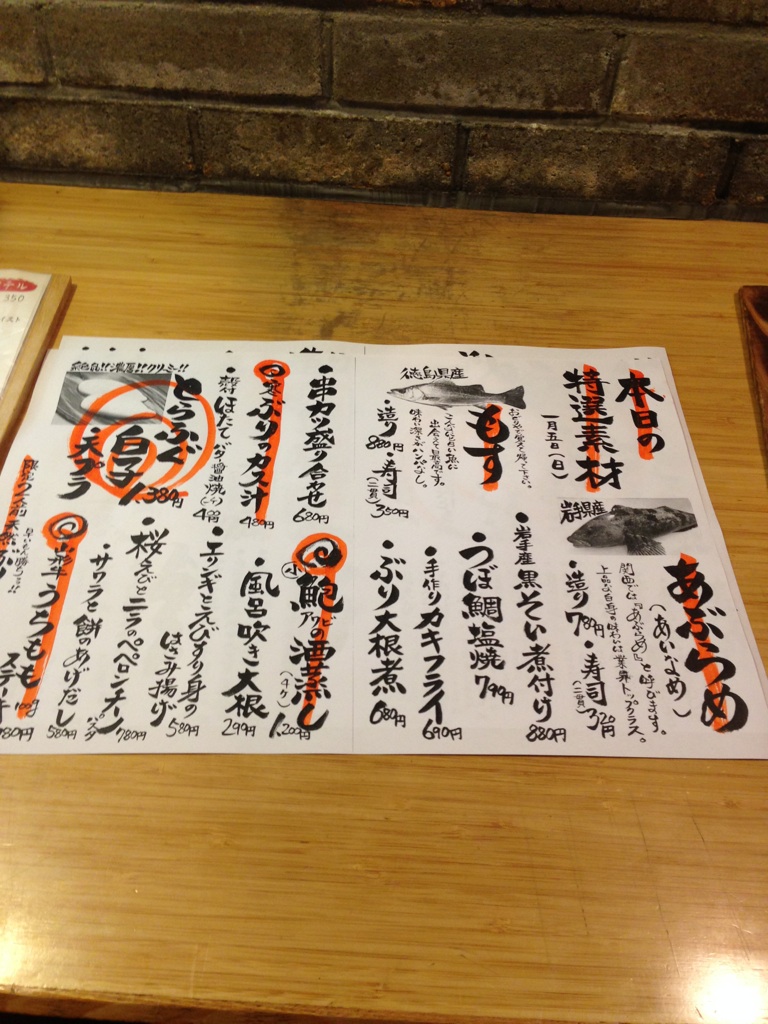 本日の
特選素材
一月五日(日)
岩手県産
あぶらめ
(あいなめ)
関西では『あぶらめ』と呼びます。
上品な白身の味わいは業界トップクラス。
・造り 780円
・寿司(二貫) 320円
徳島県産
もす
味わい深さがハンパなし。
・造り 880円
・寿司(二貫) 350円
・岩手産黒そい煮付け 880円
うぼ鯛塩焼 790円
・手作りカキフライ 690円
・ぶり大根煮 680円
・串カツ盛り合わせ 680円
寒ぶりのカス汁 480円
・殻付ほたてバター醤油焼
鮑の酒蒸し 1,200円
アワビ
・風呂吹き大根 299円
・エリンギとえびすり身の
はさみ揚げ 580円
濃厚!!クリーミー!!
とらふぐ
白子
天プラ 1,380円
・桜えびとニラのペペロンチーノ
パスタ 780円
・サワラと餅のあげだし 580円
山形牛うちもも
ステーキ
100g
350